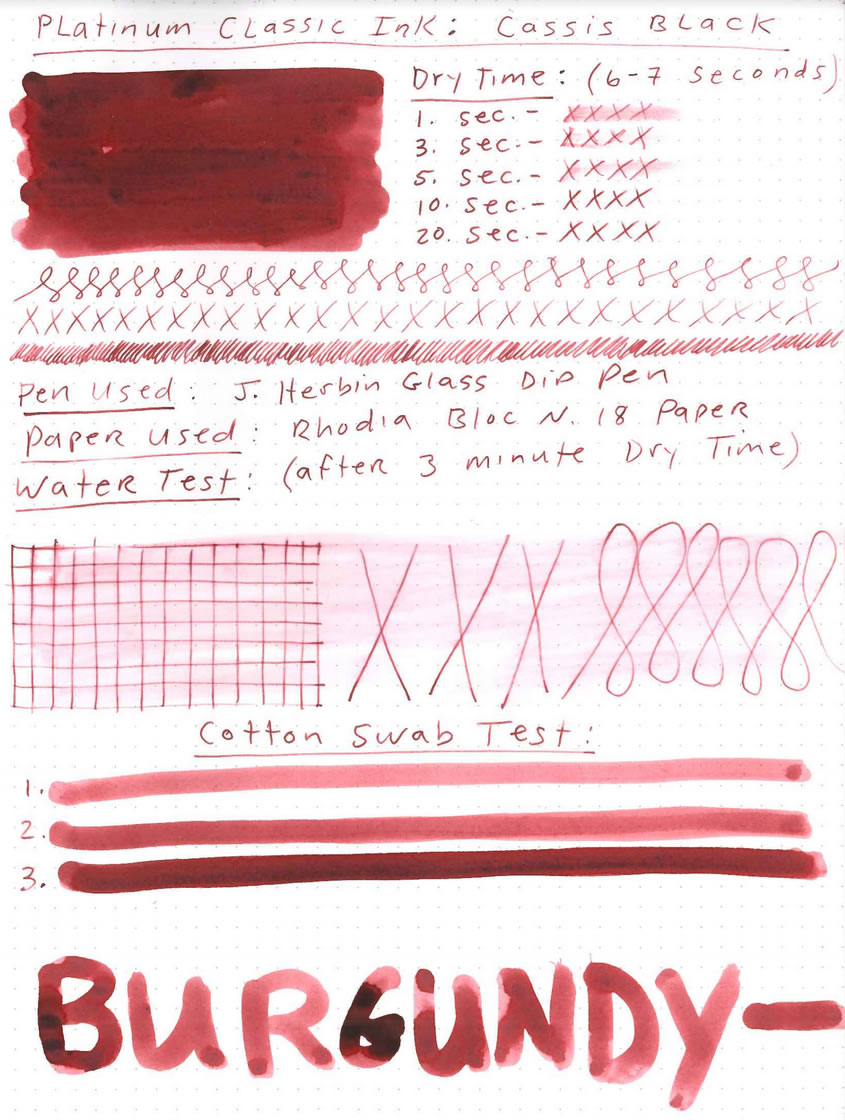 Platinum Classic Ink: Cassis Black
Dry Time: (6-7 seconds)
1. sec.- XXXX
3. sec.- XXXX
5. sec.- XXXX
10. sec.- XXXX
20. sec.- XXXX
XXXXXXXXXXXXXXXXXXXXXXXXXXXX
Pen Used: J. Herbin Glass Dip Pen
Paper Used: Rhodia Bloc N. 18 Paper
Water Test: (after 3 minute Dry Time)
XXX
Cotton Swab Test:
1.
2.
3.
BURGUNDY-